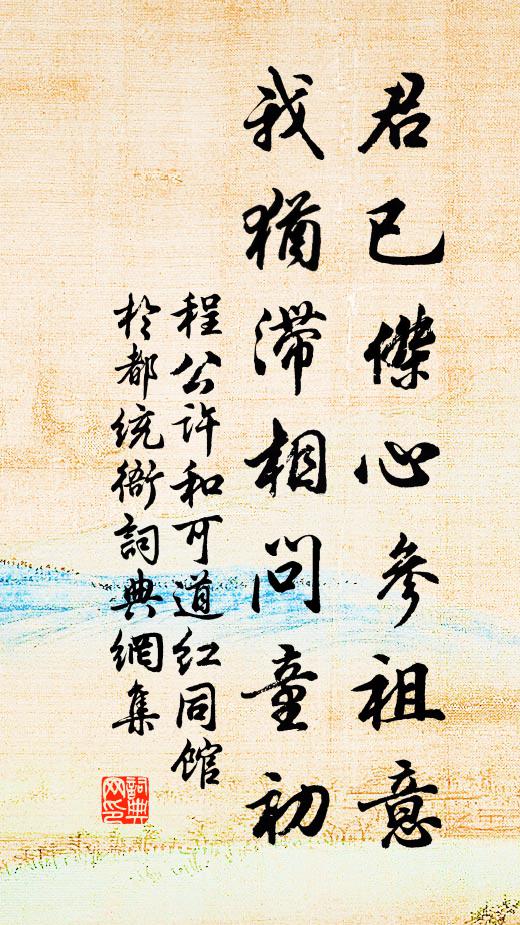 君已傑心參祖意
我猶滯相問童初
程公許和可道红同館
於都统衙詞典網集
詞典网印